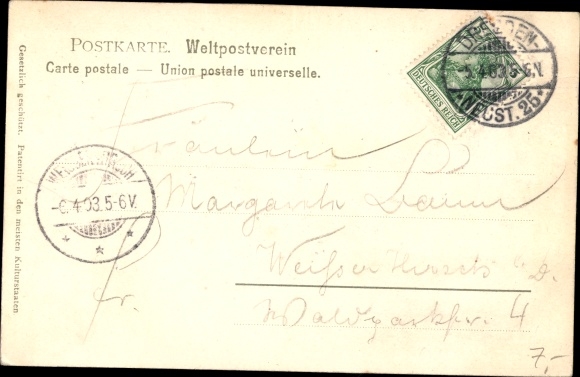 POSTKARTE. Weltpostverein
Carte postale — Union postale universelle.
Gesetzlich geschützt. Patentirt in den meisten Kulturstaaten
DEUTSCHES REICH
DRESDEN
5.4.03.5-6N.
*NEUST.25*
-6.4.03.5-6V.
Fräulein
Margarete
Weißer Hirsch b. D.
Waldparkstr. 4
Fr.
7,-